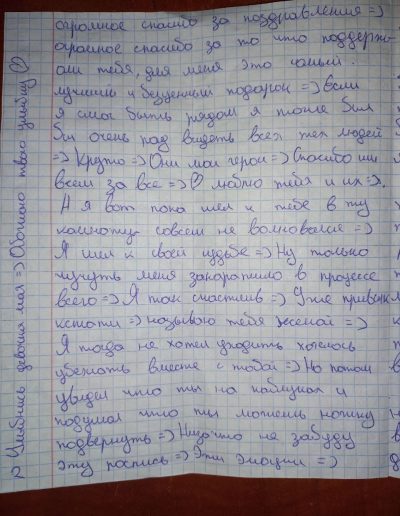 огромное спасибо за поздравления =)
огромное спасибо за то что поддержа-
ли тебя, для меня это самый
лучший и бесценный подарок =) Если
я смог быть рядом я тоже был
бы очень рад видеть всех тех людей
=) Круто =) Они мои герои =) Спасибо им
всем за все =) ♡ люблю тебя и их =).
А я вот пока шел к тебе в ту
комнату совсем не волновался =)
Я шел к своей судьбе =) Ну только
чучуть меня заколотило в процессе
всего =) Я так счастлив =) Уже привык
кстати =) называю тебя женой =)
Я тогда не хотел уходить хотелось
убежать вместе с тобой =) Но потом
увидел что ты на каблуках и
подумал что ты можешь ножку
подвернуть =) Низачто не забуду
эту роспись =) Эти эмоции =)
Улыбнись девочка моя =) Обожаю твою улыбку ♡